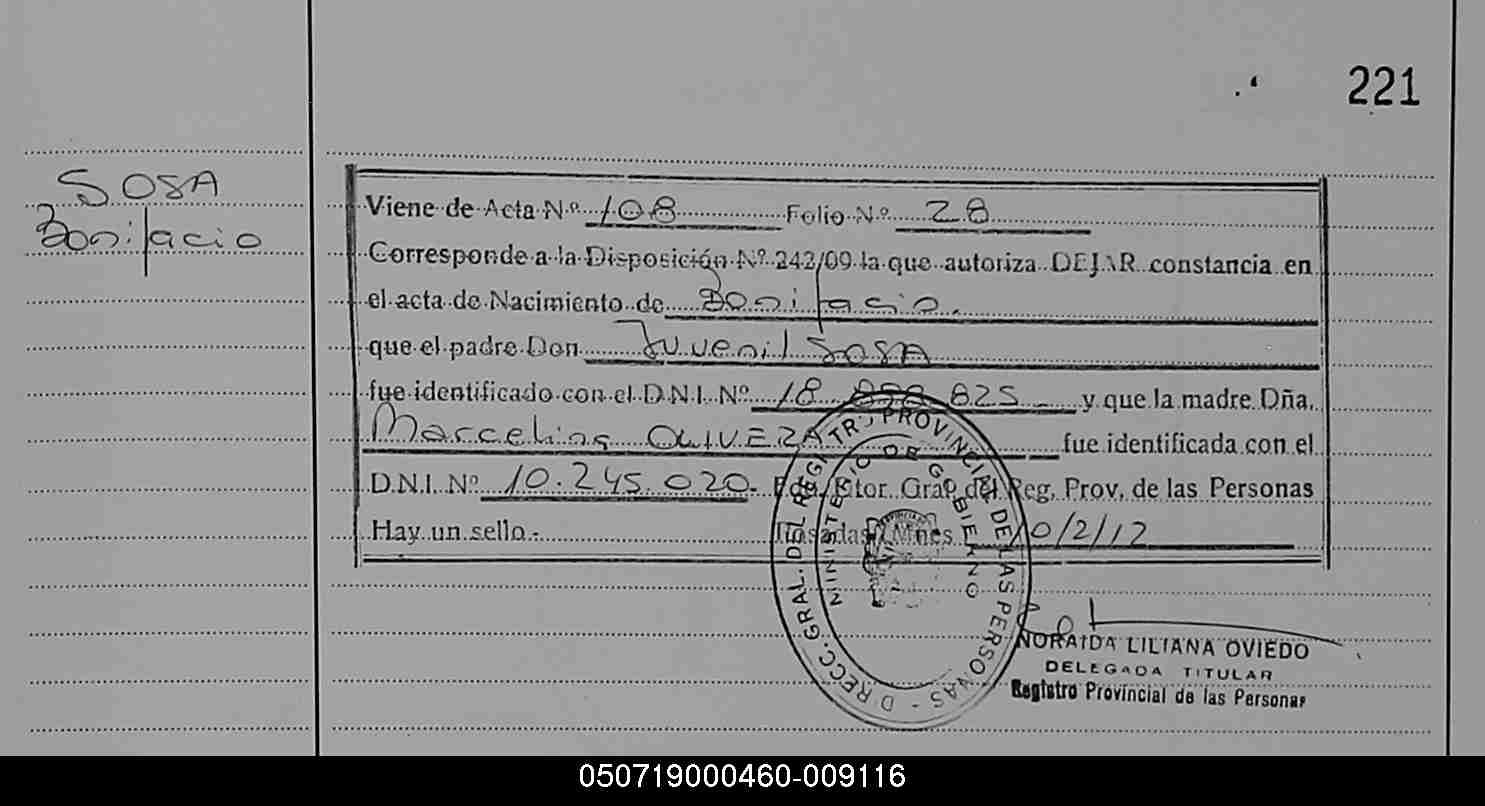 221
SOSA
Bonifacio
Viene de Acta Nº 108 Folio Nº 28
Corresponde a la Disposición Nº 242/09 la que autoriza DEJAR constancia en
el acta de Nacimiento de Bonifacio.
que el padre Don Juvenil SOSA
fue identificado con el D.N.I. Nº 18. 825 y que la madre Dña.
Marcelina OLIVERA fue identificada con el
D.N.I. Nº 10.245.020. Fdo. Dtor. Gral. del Reg. Prov. de las Personas
Hay un sello.- Posadas, Mnes. 10/2/12
DIRECC. GRAL. DEL REGISTRO PROVINCIAL DE LAS PERSONAS -
MINISTERIO DE GOBIERNO
NORAIDA LILIANA OVIEDO
DELEGADA TITULAR
Registro Provincial de las Personas
050719000460-009116